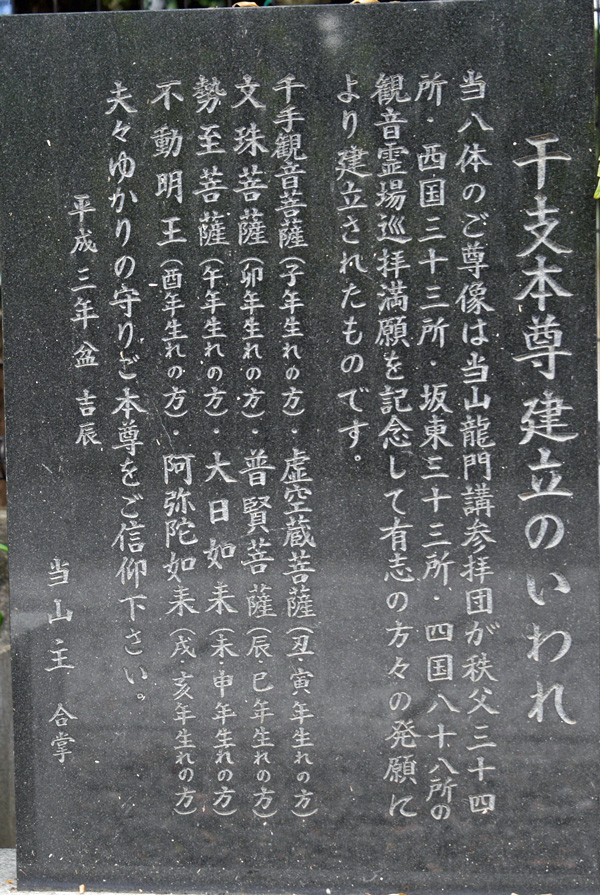 干支本尊建立のいわれ
当八体のご尊像は当山龍門講参拝団が秩父三十四
所・西国三十三所・坂東三十三所・四国八十八所の
観音霊場巡拝満願を記念して有志の方々の発願に
より建立されたものです。
千手観音菩薩(子年生れの方)・虚空蔵菩薩(丑・寅年生れの方)
文珠菩薩(卯年生れの方)・普賢菩薩(辰・巳年生れの方)
勢至菩薩(午年生れの方)・大日如来(未・申年生れの方)
不動明王(酉年生れの方)・阿弥陀如来(戌・亥年生れの方)
夫々ゆかりの守りご本尊をご信仰下さい。
平成三年盆吉辰
当山主 合掌